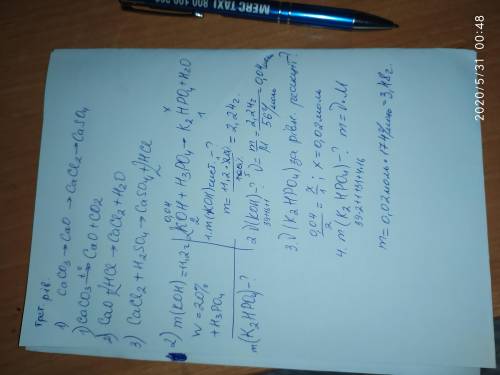 MERC TAXI 800 100 200
2020/5/31 00:48
Трет. рів.
1) CaCO₃→CaO→CaCl₂→CaSO₄
1) CaCO₃ →t° CaO+CO₂
2) CaO+2HCl→CaCl₂+H₂O
3) CaCl₂+H₂SO₄→CaSO₄+2HCl
2) m(KOH)=11,2г
W=20%
+H₃PO₄
m(K₂HPO₄)-?
0,04 x
2KOH+H₃PO₄→K₂HPO₄+H₂O
2 1
m=11,2·20/100%=2,24г.
2. ν(KOH)-? ν=m/M=2,24г/56г/моль=0,04моль
39+16+1
3. ν(K₂HPO₄) за рівн. реакції?
0,04/2=x/1; x=0,02моль
4. m(K₂HPO₄)-? m=ν·M
39·2+1+31+4·16
m=0,02моль·174г/моль=3,48г.